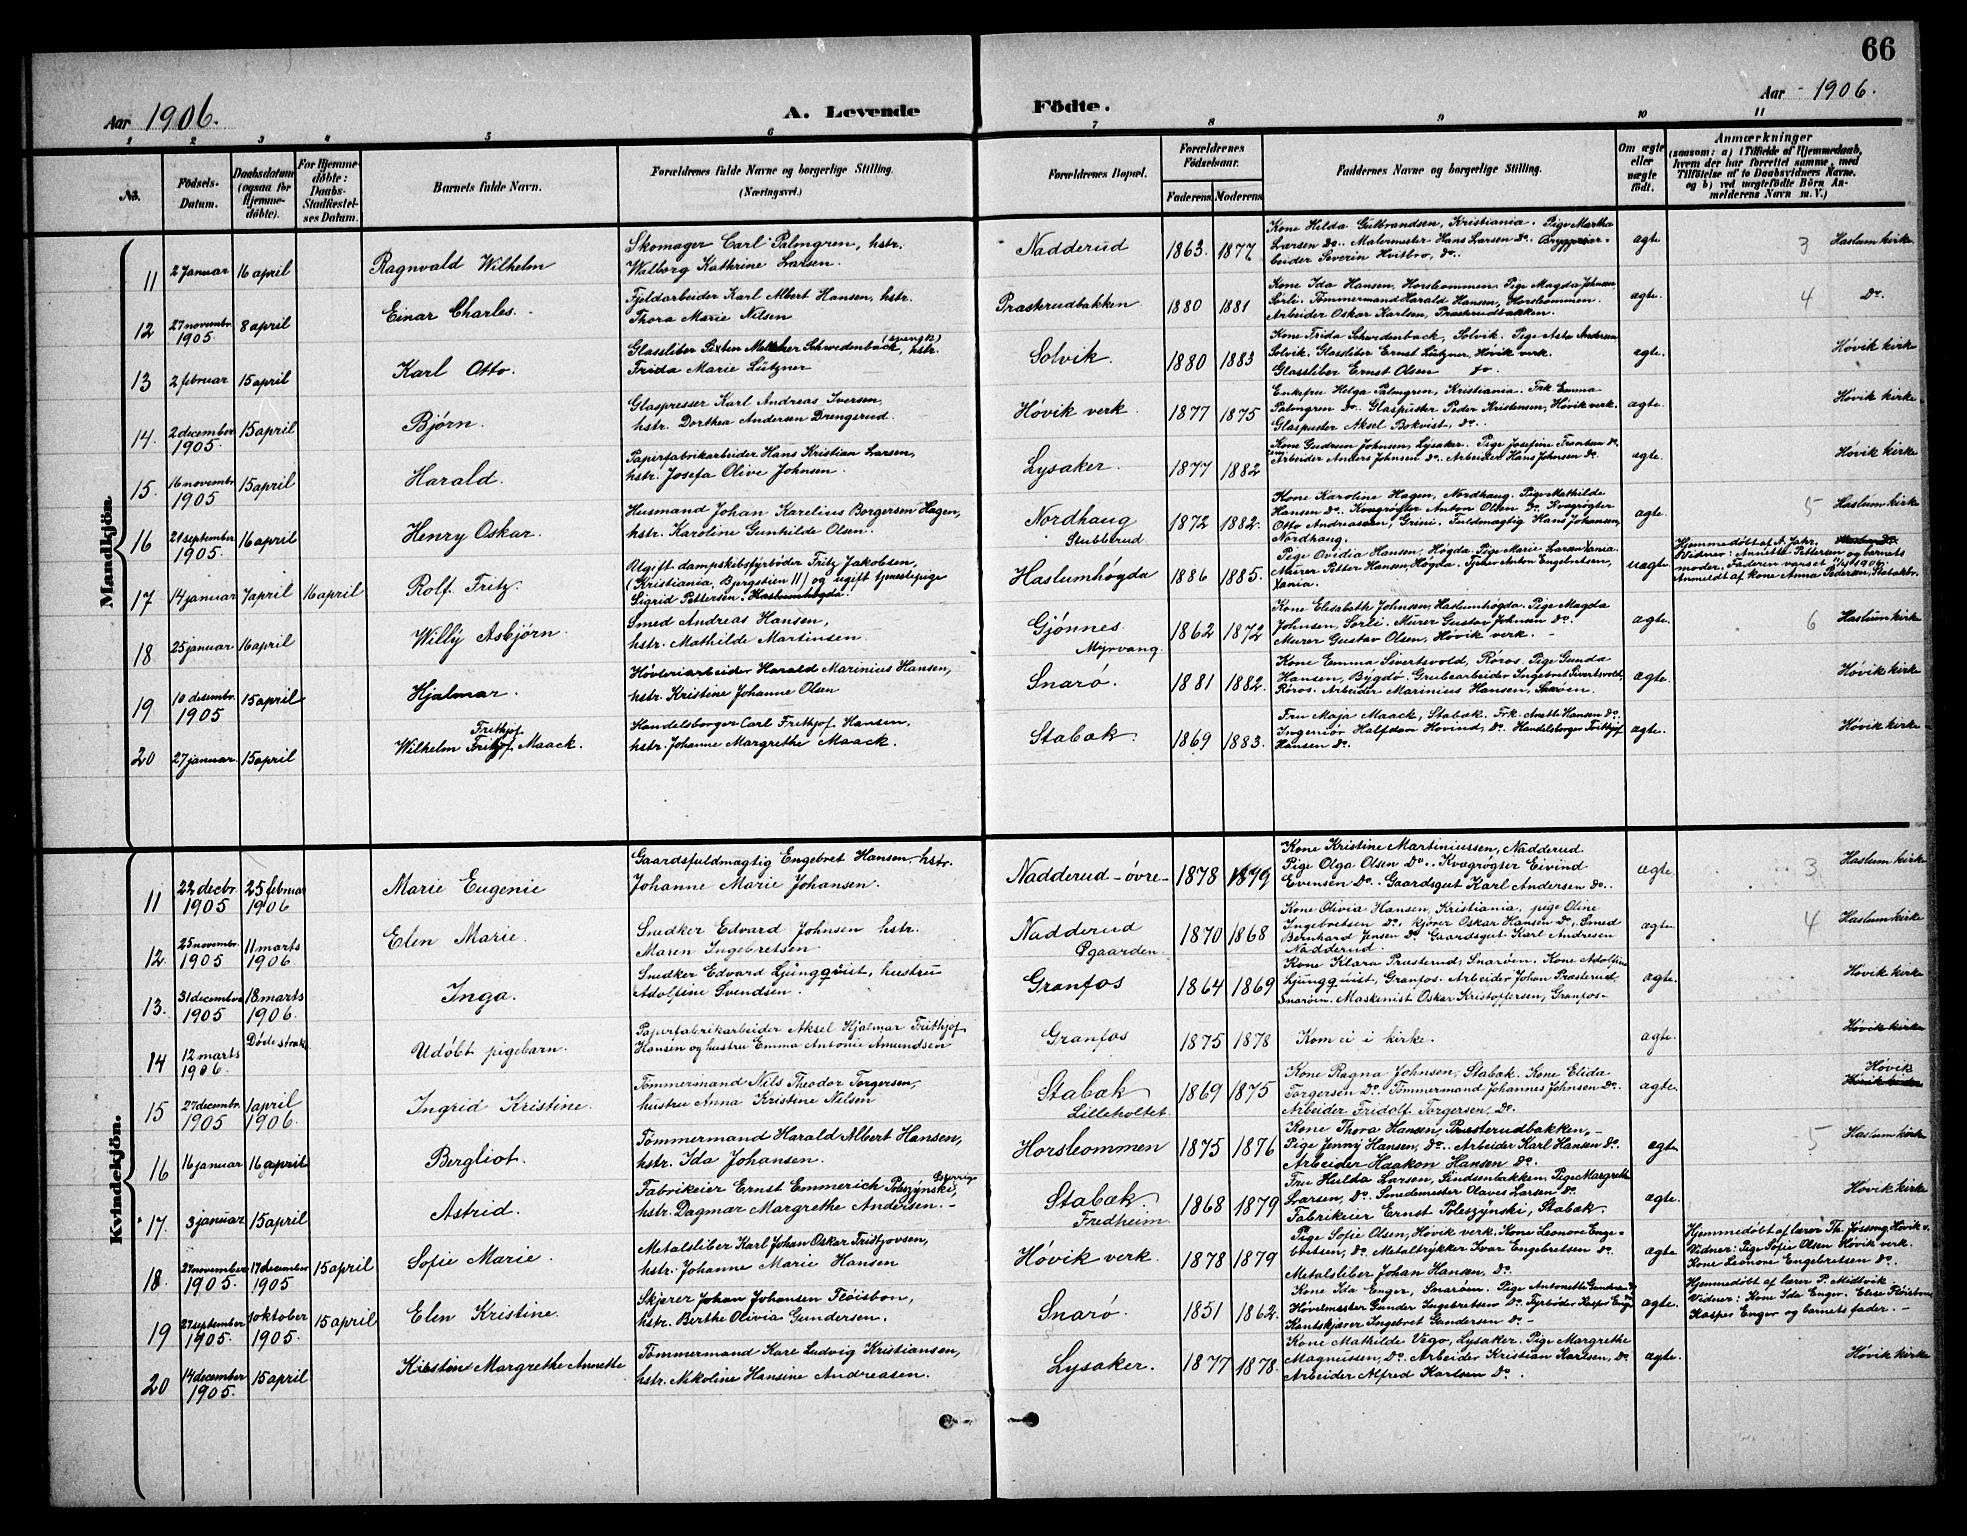 66
Aar 1906.
A. Levende Födte.
Aar 1906.
1 2 3 4 5 6 7 8 9 10 11
No.
Födsels-
Datum.
Daabsdatum
(ogsaa for
Hjemme-
döbte).
For Hjemme-
döbte:
Daabs-
Stadfæstel-
ses Datum.
Barnets fulde Navn.
Forældrenes fulde Navne og borgerlige Stilling.
(Næringsvei.)
Forældrenes Bopæl.
Forældrenes
Födselsaar.
Faderens. Moderens.
Faddernes Navne og borgerlige Stilling.
Om ægte
eller
uægte
födt.
Anmærkninger
(saasom: a) i Tilfælde af Hjemmedaab,
hvem der har forrettet samme, med
Tilföielse af to Daabsvidners Navne.
og b) ved uægtefödte Börn An-
melderens Navn m. V.)
Mandkjön
11 2 januar 16 april Ragnvald Wilhelm
Skomager Carl Palmgren, hstr.
Walborg Kathrine Larsen.
Nadderud 1863. 1877
Kone Hilda Gulbrandsen, Kristiania. Pige Martha
Larsen Do. Malermester Hans Larsen Do. Bryggeriar-
beider Severin Hvitbro, do.
ægte 3 Haslum kirke
12 27 novembr. 1905 8 april Einar Charles.
Fjeldarbeider Karl Albert Hansen, hstr.
Thora Marie Nilsen
Præsterudbakken 1880 1881
Kone Ida Hansen, Horslеommen. Pige Magda Johnsen
Sørli. Tømmermand Harald Hansen, Horsleommen.
Arbeider Oskar Karlsen, Præsterudbakken.
ægte. 4 Do.
13 2 februar 15 april Karl Otto.
Glassliber Sixten Melcher Schwedenback, (svensk) hstr.
Frida Marie Lützner
Solvik. 1880 1883
Kone Frida Schwedenback, Solvik. Pige Asta Andersen
Solvik. Glassliber Ernst Lützner, Høvik verk.
Glassliber Ernst Olsen do.
ægte. Høvik kirke
14. 2 december 1905 15 april Bjørn.
Glaspresser Karl Andreas Iversen,
hstr. Dorthea Andersen Drengsrud.
Høvik verk. 1877 1875
Enkefru Helga Palmgren, Kristiania. Frk. Emma
Palmgren Do. Glaspuster Peder Kristensen, Høvik verk.
Glaspuster Aksel Bokvist, do.
ægte. Høvik kirke
15. 16 novembr. 1905 15 april Harald.
Papirfabrikarbeider Hans Kristian Larsen,
hstr. Josefa Olive Johnsen.
Lysaker. 1877 1882
Kone Gudrun Johnsen, Lysaker. Pige Josefine Frantsen do.
Arbeider Anders Johnsen do. Arbeider Hans Johnsen do.
ægte. Høvik kirke
16 21 september 1905 16 april Henry Oskar.
Husmand Johan Karelius Borgersen Hagen,
hstr. Karoline Gunhilde Olsen.
Nordhaug Stubberud 1872 1882.
Kone Karoline Hagen, Nordhaug. Pige Mathilde
Hansen Do. Kvægrøgter Anton Olsen Do. Svægrøgter
Otto Andreassen, Grini. Fuldmægtig Hans Johansen,
Nordhaug.
ægte. 5 Haslum kirke
17 14 januar 7 april 16 april Rolf Fritz.
Ugift dampskibsfyrbøder Fritz Jakobsen,
(Kristiania, Bergstien 11) og ugift tjenestepige
Sigrid Pettersen. Haslumhøgda
Haslumhøgda 1886 1885.
Pige Ovidia Hansen, Høgda. Pige Marie Larsen Xania.
Murer Petter Hansen, Høgda. Tjener Anton Engebretsen,
Xania.
uægte. Hjemmedøbt af A. Jahr.
Vidner: Annette Pettersen og barnets
moder. Faderen varslet 11/4 1906.
Anmeldt af kone Anna Pedersen, Stabækbr.
18 25 januar 16 april Willy Asbjørn.
Smed Andreas Hansen,
hstr. Mathilde Martinsen.
Gjønnes Myrvang. 1862 1872
Kone Elisabeth Johnsen, Haslumhøgda. Pige Magda
Johnsen, Sørli. Murer Gustav Johnsen do.
Murer Gustav Olsen, Høvik verk.
ægte. 6 Haslum kirke
19 10 desembr. 1905 15 april Hjalmar.
Høvleriarbeider Harald Marinius Hansen,
hstr. Kristine Johanne Olsen
Snarø. 1881 1882.
Kone Emma Sivertsvold, Røros. Pige Gunda
Hansen, Bygdø. Grubearbeider Ingebret Sivertsvold,
Røros. Arbeider Marinius Hansen, Snarøen.
ægte. Høvik kirke
20 27 januar. 15 april Wilhelm Fritjof Frithjof Maack.
Handelsborger Carl Frithjof Hansen,
hstr. Johanne Margrethe Maack.
Stabæk. 1869 1883.
Fru Maja Maack, Stabæk. Frk. Anette Hansen do.
Ingeniør Halfdan Hovind, do. Handelsborger Frithjof
Hansen do.
ægte. Høvik kirke
Kvindekjön.
11 22 decbr. 1905 25 februar 1906 Marie Eugenie
Gaardsfuldmægtig Engebret Hansen, hstr.
Johanne Marie Johansen.
Nadderud - øvre - 1878 1879
Kone Kristine Martiniussen, Nadderud
Pige Olga Olsen Do. Kvægrøgter Eivind
Evensen Do. Gaardsgut Karl Andersen do.
ægte. 3 Haslum kirke
12. 25 novembr. 1905 11 marts 1906 Elen Marie.
Snedker Edvard Johnsen hstr.
Maren Ingebretsen
Nadderud Pgaarden. 1870 1868
Kone Olivia Hansen, Kristiania, pige Oline
Ingebretsen Do, kjører Oskar Hansen Do, Smed
Bernhard Jensen Do. Gaardsgut Karl Andresen
Nadderud.
ægte. 4 Haslum kirke
13. 31 decembre 1905 18 marts 1906. Inga.
Snedker Edvard Ljungquist, hustru
Adolfine Svendsen.
Granfos 1864 1869
Kone Klara Præsterud, Snarøen. Kone Adolfine
Ljungquist, Granfos. Arbeider Johan Præsterud,
Snarøen. Maskenist Oskar Kristoffersen, Granfos-
ægte. Høvik kirke
14 12 marts 1906. Døde straks Udøbt pigebarn.
Papirfabrikarbeider Aksel Hjalmar Frithjof
Hansen og hustru Emma Antonie Amundsen
Granfos 1875 1878 Kom ei i kirke. ægte. Høvik kirke
15 27 decembr. 1905 1 april 1906. Ingrid Kristine.
Tømmermand Nils Theodor Torgersen,
hustru Anna Kristine Nilsen
Stabæk Lilleholtet. 1869 1875
Kone Ragna Johnsen, Stabæk. Kone Elida
Torgersen Do. Tømmermand Johannes Johnsen Do.
Arbeider Fridolf Torgersen, Do.
ægte. Høvik Høvik kirke
16 16 januar 16 april Bergliot.
Tømmermand Harald Albert Hansen,
hstr. Ida Johansen.
Horsleommen 1875 1876
Kone Thora Hansen, Præsterudbakken, -
Pige Jenny Hansen, do. Arbeider Karl Hansen do.
Arbeider Haakon Hansen do.
ægte 5 Haslum kirke
17. 3 januar 15 april Astrid.
Fabrikeier Ernst Emmerich Poleszynski, Østerrige
hstr. Dagmar Margrethe Andersen. -
Stabæk Fredheim. 1868 1879
Fru Hulda Larsen, Lindsenbakken. Pige Margrethe
Larsen, Do. Smedemester Olaves Larsen do.
Fabrikeier Ernst Poleszynski, Stabæk.
ægte. Høvik kirke
18. 27 november 1905 17 december 1905 15 april Sofie Marie.
Metalsliber Karl Johan Oskar Fristjovsen,
hstr. Johanne Marie Hansen
Høvik verk. 1878 1879
Pige Sofie Olsen, Høvik verk. Kone Leonore Enge-
bretsen, do. Metaltrykker Ivar Engebretsen do.
Metalsliber Johan Hansen, do.
ægte Hjemmedøbt af lærer Th. Jossang Høvik v.
Vidner: Pige Sofie Olsen Høvik verk.
Kone Leonore Engebretsen do.
19 27 september 1905. 1 oktober 1905. 15 april Elen Kristine.
Skjærer Johan Johansen Fløisbon,
hstr. Berthe Olivia Gundersen.
Snarø. 1851 1862.
Kone Ida Enger, Snarøen. Pige Antonette Gundersen do.
Høvelmester Gunder Ingebretsen Do. Fyrbøder Kasper Enger
Kantskjører Ingebret Gundersen do. -
ægte. Hjemmedøbt af lærer P. Midtvik
Vidner: Kone Ida Enger. Elise Fløisbon
Kasper Enger og barnets fader. -
20 14 december 1905. 15 april Kirstine Margrethe Annette
Tømmermand Kare Ludvig Kristiansen,
hstr. Nikoline Hansine Andreasen.
Lysaker. 1877 1878.
Kone Mathilde Vego, Lysaker. Pige Margrethe
Magnussen, Do. Arbeider Kristian Karlsen, Do.
Arbeider Alfred Karlsen Do.
ægte. Høvik kirke